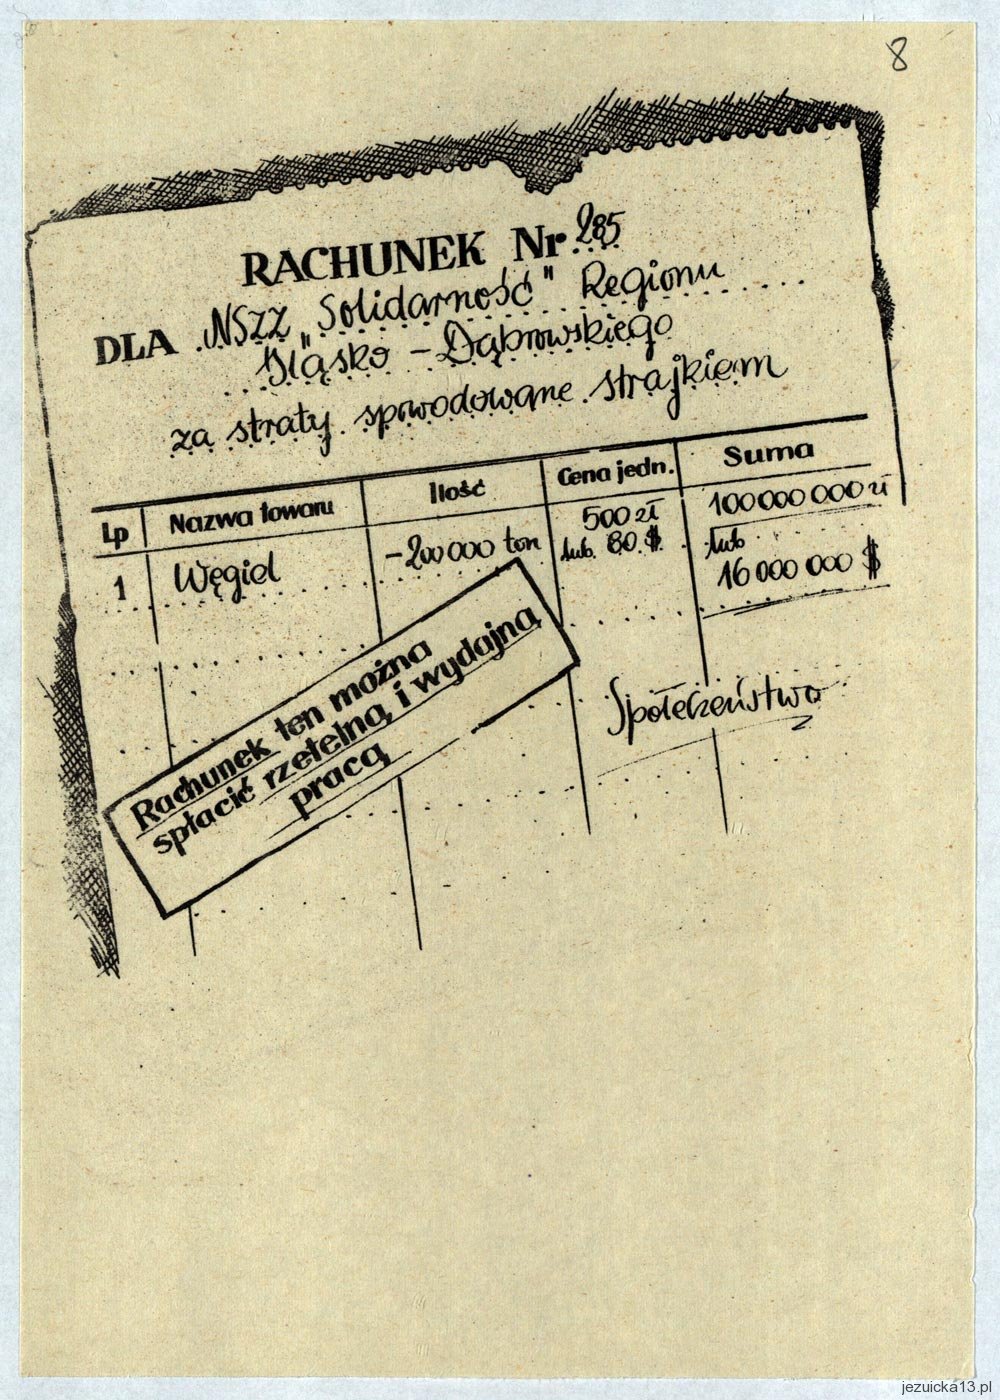 8
RACHUNEK Nr 285
DLA NSZZ „Solidarność" Regionu
Śląsko - Dąbrowskiego
za straty spowodowane strajkiem
Lp Nazwa towaru Ilość Cena jedn. Suma
1 Węgiel -200 000 ton 500 zł 100 000 000 zł
lub 80 $ lub
16 000 000 $
Rachunek ten można
spłacić rzetelną i wydajną
pracą
Społeczeństwo
jezuicka13.pl